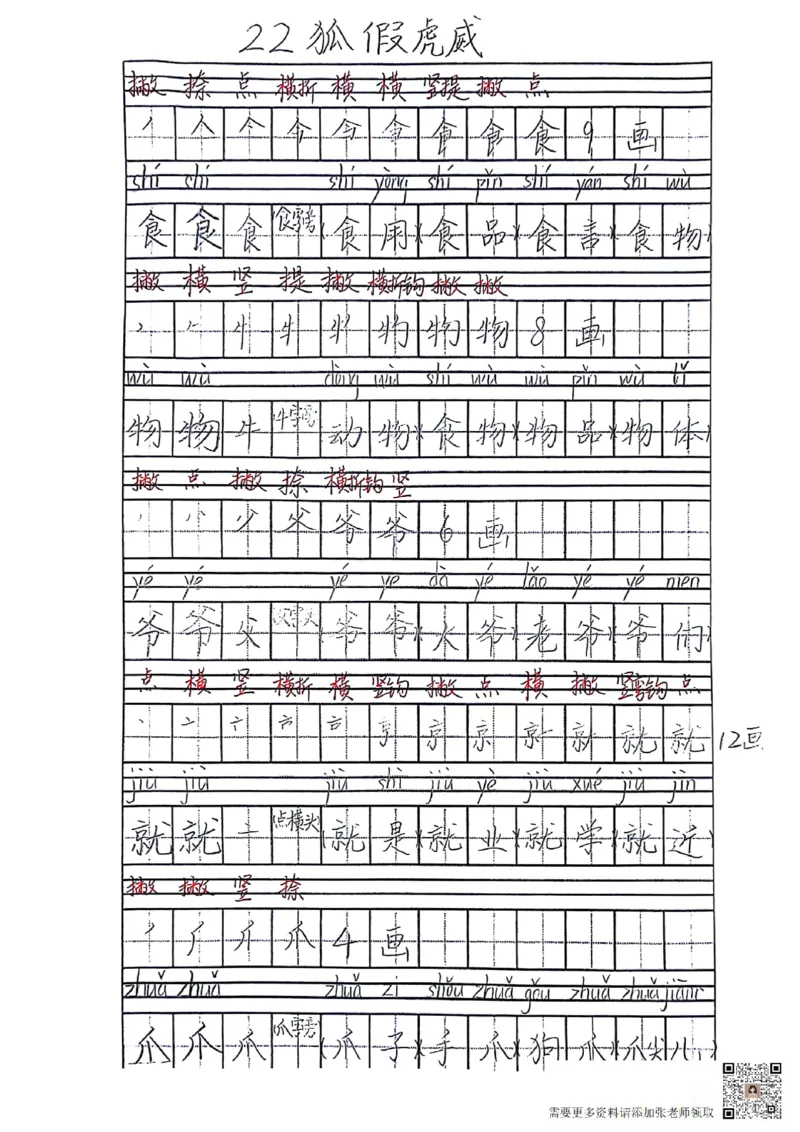 22 狐假虎威
撇 捺 点 横折 横 横 竖提 撇 点
丿 人 亽 今 令 令 食 食 食 9 画
shí shí shí yòng shí pǐn shí yán shí wù
食 食 食 食字旁 (食 用)(食 品)(食 言)(食 物)
撇 横 竖 提 撇 横折钩 撇 撇
丿 𠂉 牛 牜 牜 物 物 物 8 画
wù wù dòng wù shí wù wù pǐn wù tǐ
物 物 牛 牛字旁 (动 物)(食 物)(物 品)(物 体)
撇 点 撇 捺 横折钩 竖
丿 八 父 爷 爷 6 画
yé yé yé ye dà yé lǎo yé yé men
爷 爷 父 父字头 (爷 爷)(大 爷)(老 爷)(爷 们)
点 横 竖 横折 横 竖钩 撇 点 横 撇 竖弯钩 点
丶 亠 亠 古 京 京 就 就 就 12画
jiù jiù jiù shì jiù yè jiù xué jiù jìn
就 就 亠 点横头 (就 是)(就 业)(就 学)(就 近)
撇 撇 竖 捺
丿 厂 爪 爪 4 画
zhuǎ zhuǎ zhuǎ zi shǒu zhuǎ gǒu zhuǎ zhuǎ jiānr
爪 爪 爪 爪字旁 (爪 子)(手 爪)(狗 爪)(爪尖儿)
需要更多资料请添加张老师领取